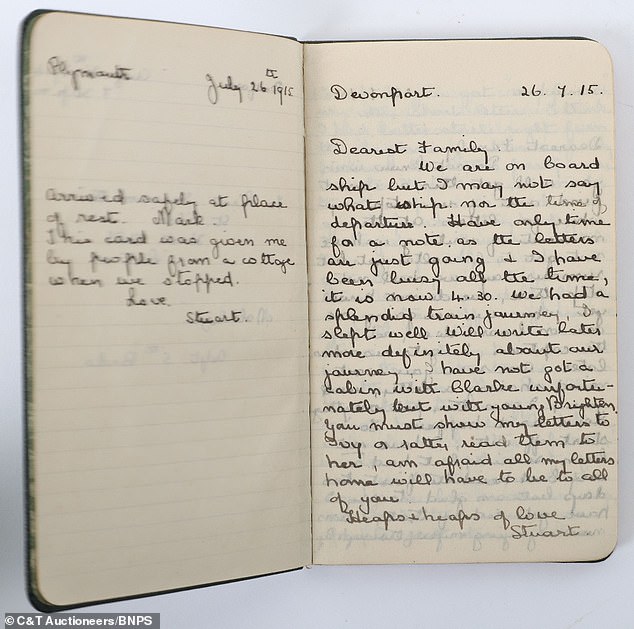 Plymouth
July 26th 1915
Arrived safely at place
of rest. Mark.
This card was given me
by people from a cottage
when we stopped.
Love.
Stuart.
Devonport. 26.7.15.
Dearest Family.
We are on board
ship but I may not say
what ship nor the time of
departure. Have only time
for a note as the letters
are just going & I have
been busy all the time,
it is now 4.30. We had a
splendid train journey. I
slept well. Will write later
more definitely about our
journey. I have not got a
cabin with Clarke unfortu-
nately but with young Brighten.
You must show my letters to
Ivy or rather read them to
her, am afraid all my letters
home will have to be to all
of you.
Heaps & heaps of love
Stuart
© C&T Auctioneers/BNPS